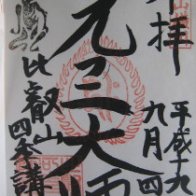 奉拝
平成十九
九月四
元三大師
比叡山
四季講